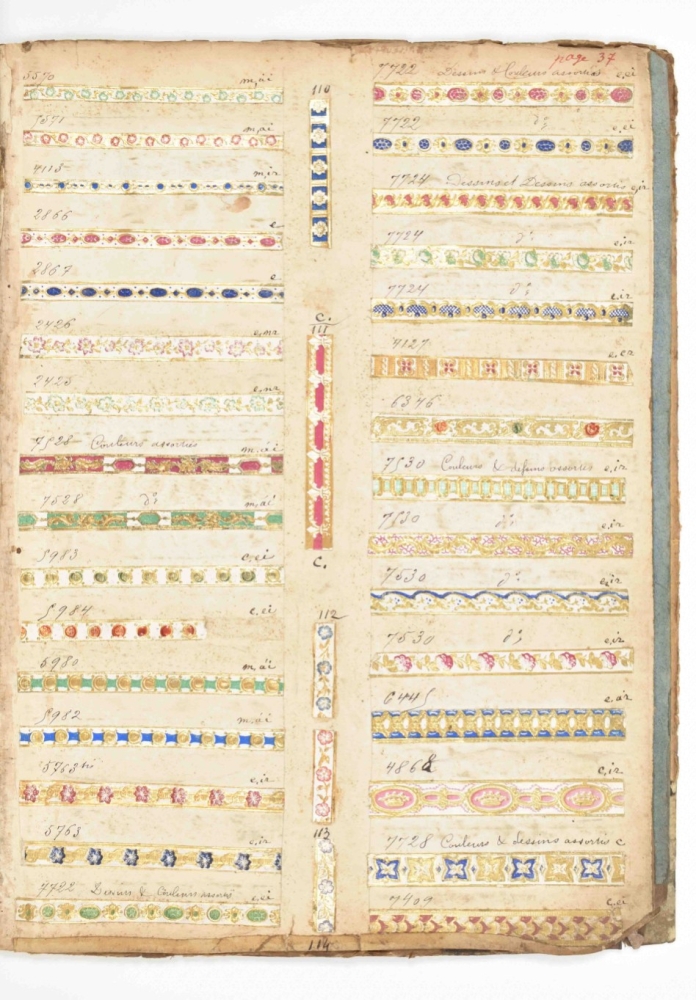 page 37
5570 m,ai
5571 m,ai
4115 m,ir
2866 c
2867 c
2426 c,mr
2425 c,mr
7528 Couleurs assorties m,ai
7528 do m,ai
5983 c,ci
5984 c,ci
5980 m,ai
5982 m,ai
5763 bi c,ir
5763 c,ir
7722 Dessins & Couleurs assortis c,ci
110
C.
111
C.
112
113
114
7722 Dessins & Couleurs assorties c,ci
7722 do c,ci
7724 Dessins assortis c,ir
7724 do c,ir
7724 do c,ir
4127
6346
7530 Couleurs & dessins assorties c,ir
7530 do c,ir
7530 do c,ir
7530 do c,ir
6445 c,ar
4868 c,ir
7728 Couleurs & dessins assortis c
7409 c,ci